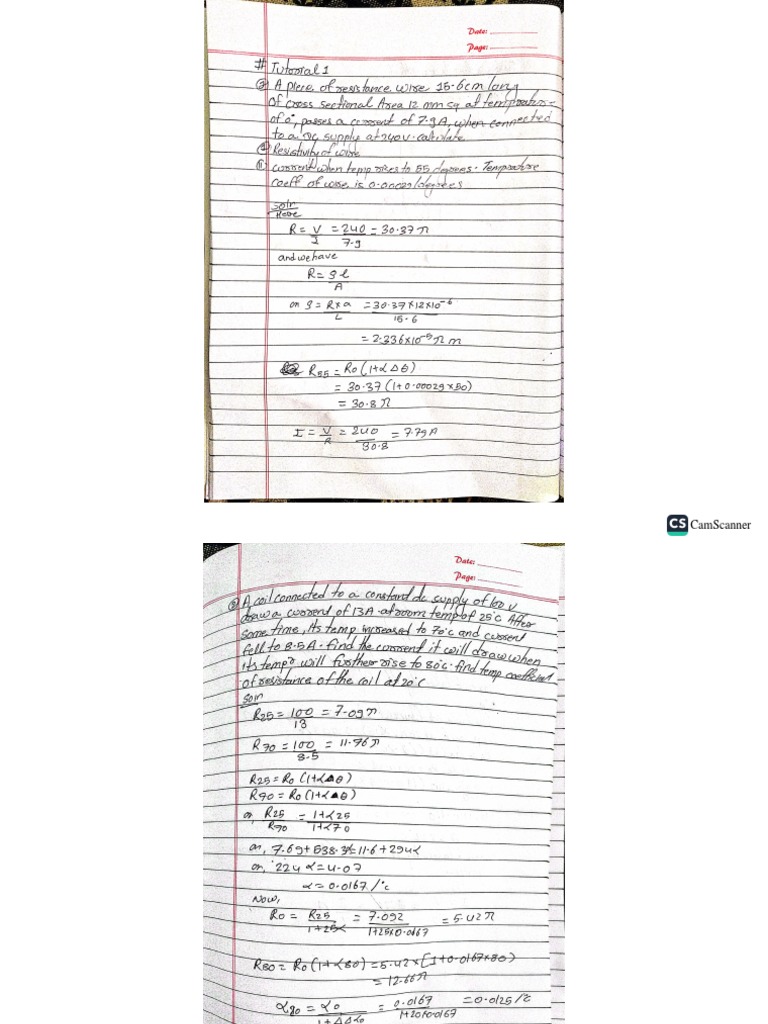 Date:
Page:
# Tutorial 1
③ A piece of resistance wire 15.6cm long
of cross sectional Area 12 mm sq at temprature
of 0°, passes a current of 7.9A, when connected
to a dc supply at 240V. calculate
① Resistivity of wire
⑪ current when temp rises to 55 degrees. Temprature
coeff of wire is 0.00029/degrees
soln
Here
R = V/I = 240/7.9 = 30.37 Ω
and we have
R = ρl/A
or ρ = R×a/L = 30.37×12×10⁻⁶/15.6
= 2.336×10⁻⁵ Ω m
R55 = R0 (1+αΔθ)
= 30.37 (1+0.00029×50)
= 30.8 Ω
I = V/R = 240/30.8 = 7.79A
CS CamScanner
Date:
Page:
⑧ A coil connected to a constant dc supply of 100 V
draw a current of 13A at room temp of 25°C After
some time, Its temp increased to 70°C and current
fell to 8.5A. find the current it will draw when
its temp will further rise to 80°C. find temp coefficient
of resistance of the coil at 20°C
Soln
R25 = 100/13 = 7.09 Ω
R70 = 100/8.5 = 11.76 Ω
R25 = R0 (1+αΔθ)
R90 = R0 (1+αΔθ)
or, R25/R90 = 1+α25/1+α70
or, 7.69+538.3α=11.6+294α
or, 224 α = 4.07
α = 0.0167 /°c
Now,
R0 = R25/1+25α = 7.092/1+25×0.0167 = 5.42 Ω
R80 = R0 (1+α80) = 5.42×[1+0.0167×80)
= 12.66 Ω
α20 = α0/1+ΔΔα0 = 0.0167/1+20×0.0167 = 0.0125 /°C